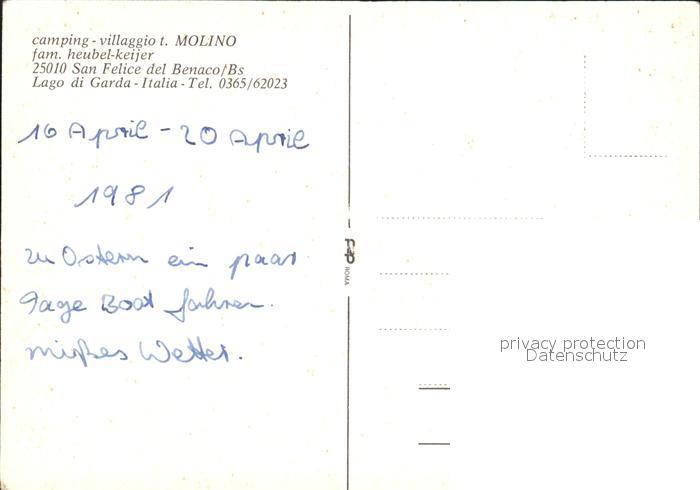 camping - villaggio t. MOLINO
fam. heubel-keijer
25010 San Felice del Benaco/Bs
Lago di Garda - Italia - Tel. 0365/62023
16 April - 20 April
1981
zu Ostern ein paar
Tage Boot fahren.
mißes Wetter.
fap
ROMA
privacy protection
Datenschutz